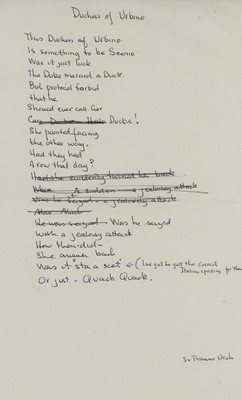 Duchess of Urbino
This Duchess of Urbino
Is something to be Seenio
Was it just luck
The Duke married a Duck.
But protocol forbid
that he
Should ever call her
Duckie!
She painted facing
the other way,
Had they had
A row that day?
Had she suddenly turned her back
When a sudden a jealousy attack
Was he seized a jealousy attack
Alas Alack
He was seized - Was he seized
With a jealousy attack
How then did
She answer back
Was it "sta a set" (I've got to get the correct
Italian spelling for this
Or just - Quack Quack.